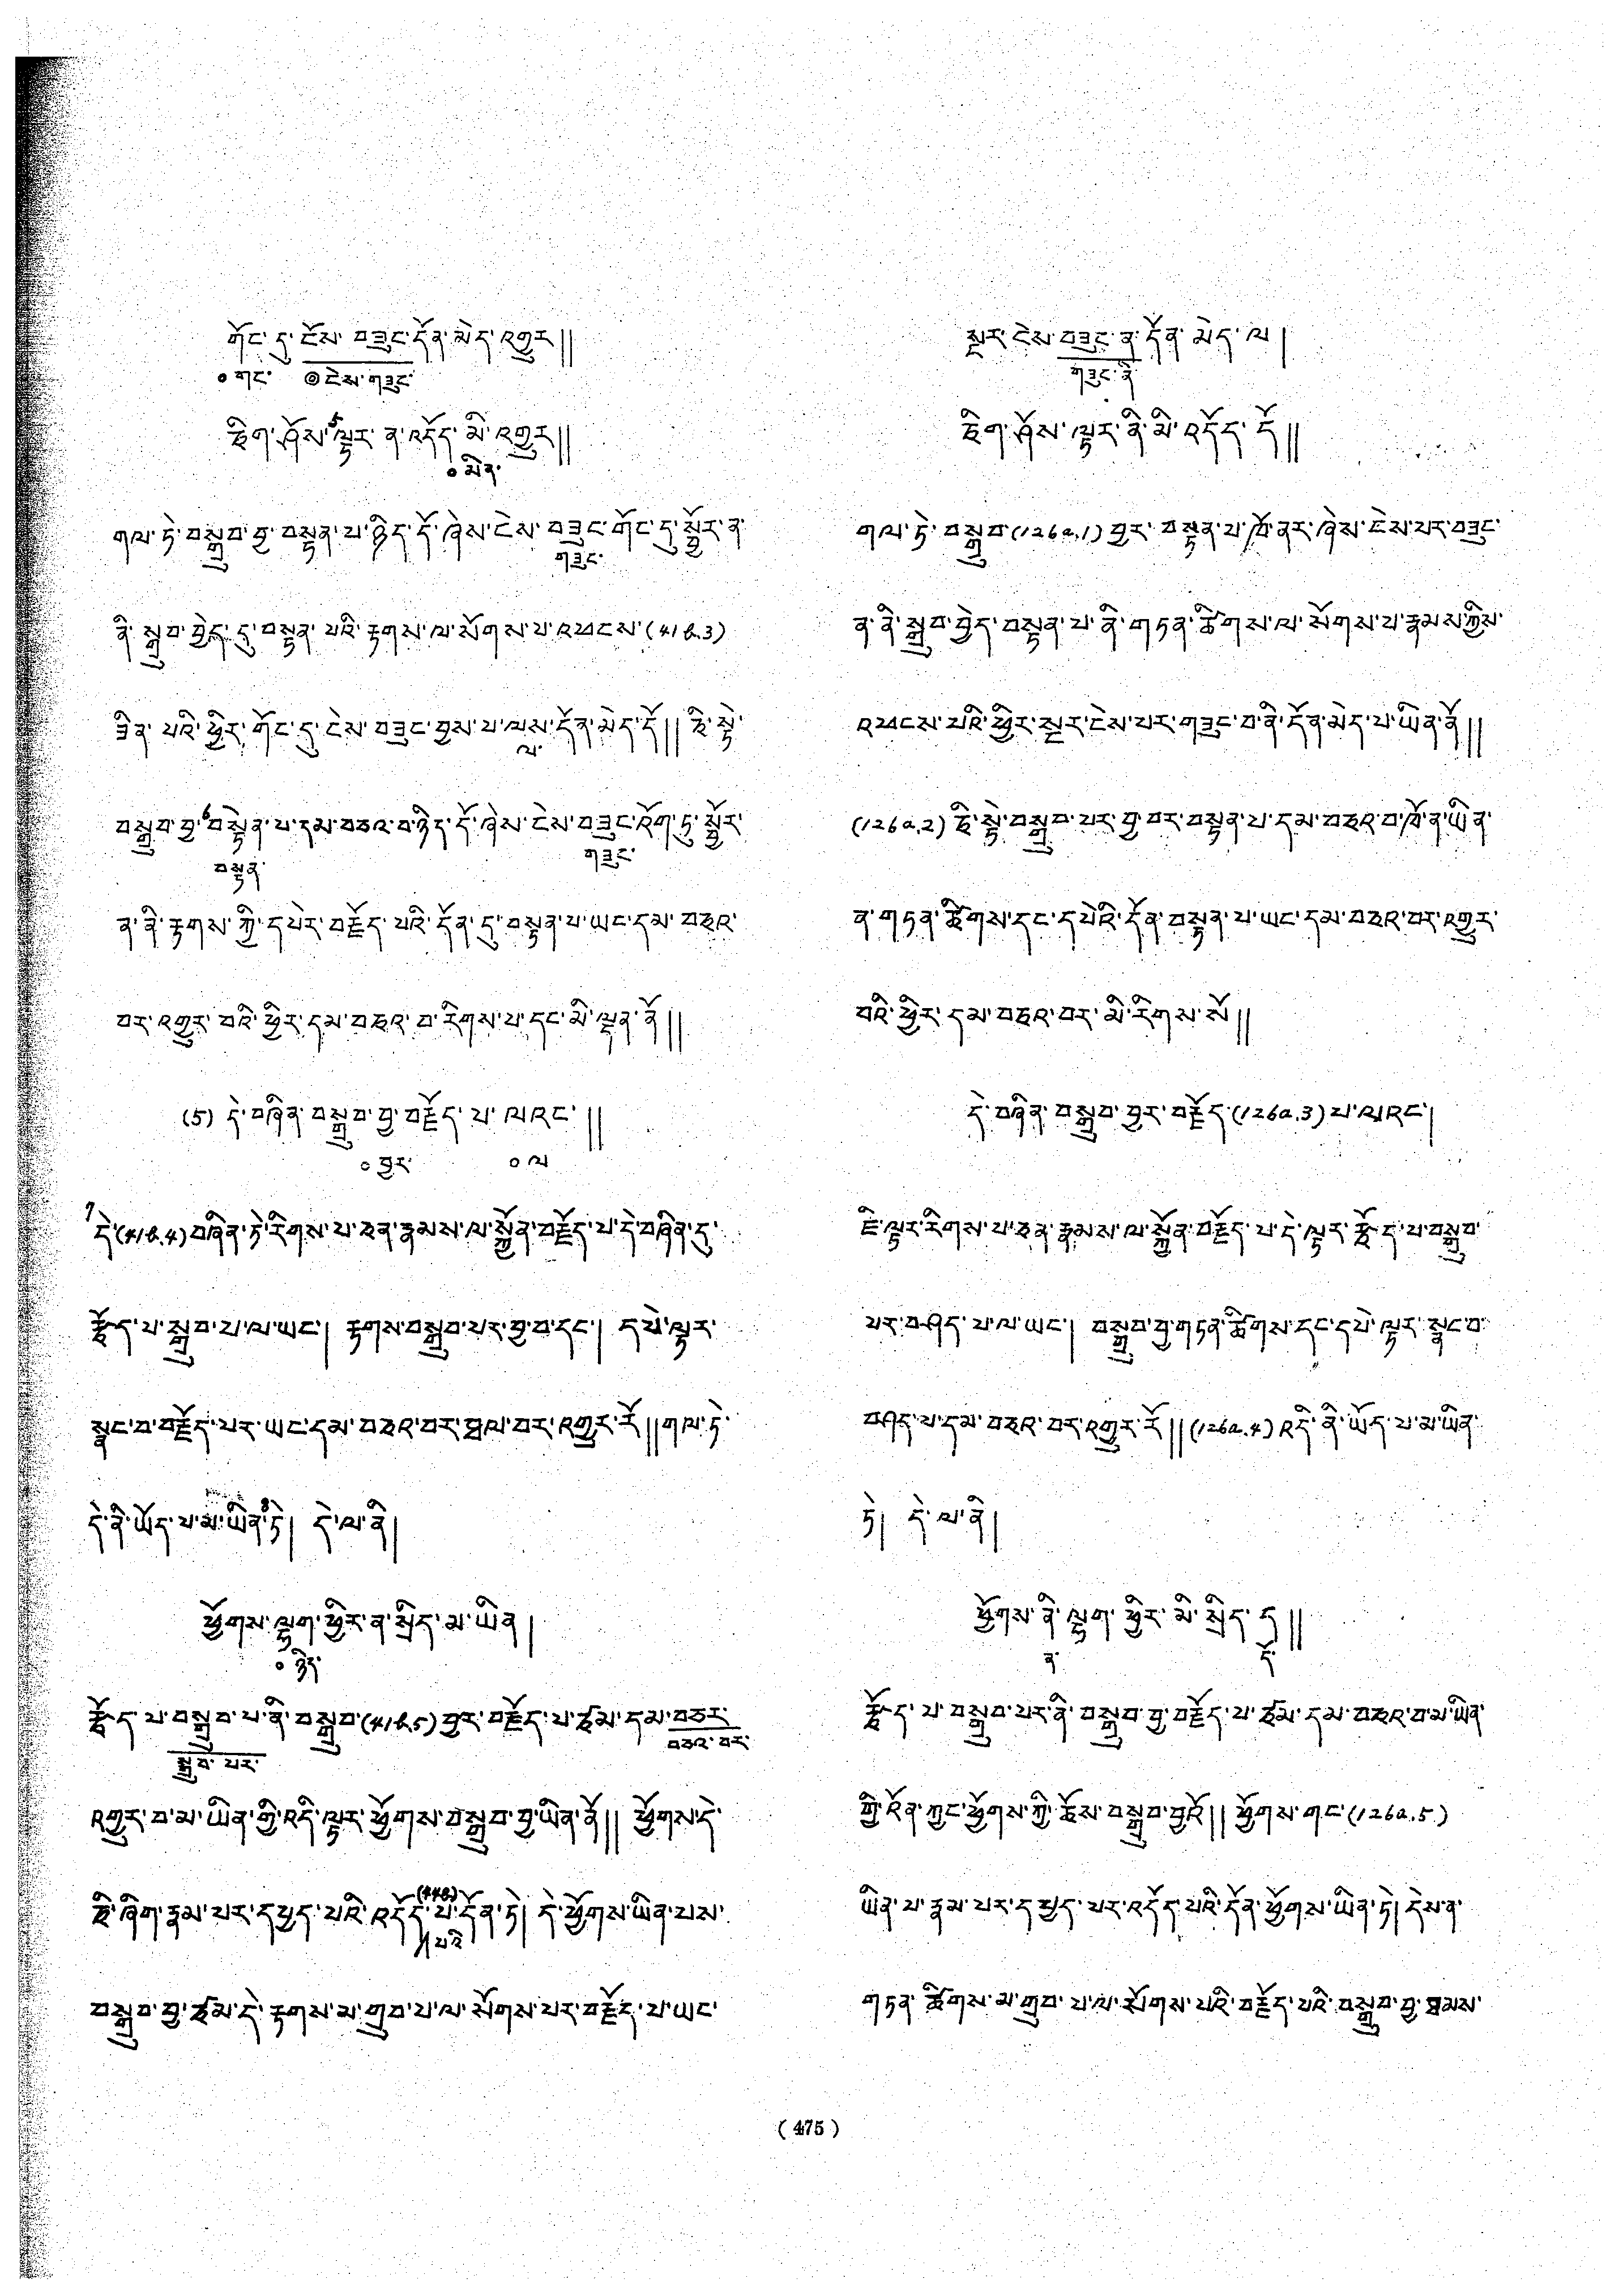 གོང་དུ་ངོས་བཟུང་དོན་མེད་འགྱུར༎
∘གང་ ⊚ངེས་གཟུང་
ཅིག་ཤོས་ལྟར་ན་འདོད་མི་འགྱུར༎
∘མིན་
གལ་ཏེ་བསྒྲུབ་བྱ་བསྟན་པ་ཉིད་དོ་ཞེས་ངེས་བཟུང་གོང་དུ་སྦྱོར་ན་
གཟུང་
ནི་སྒྲུབ་བྱེད་དུ་བསྟན་པའི་རྟགས་ལ་སོགས་པ་འཕངས་(41b.3)
ཟིན་པའི་ཕྱིར་གོང་དུ་ངེས་བཟུང་བྱས་པ་ལས་དོན་མེད་དོ༎ ཅི་སྟེ་
ལ་
བསྒྲུབ་བྱ་6བསྟེན་པ་དམ་བཅའ་བ་ཉིད་དོ་ཞེས་ངེས་བཟུང་འོག་ཏུ་སྦྱོར་
བསྟན་ གཟུང་
ན་ནི་རྟགས་ཀྱི་དཔེར་བརྗོད་པའི་དོན་དུ་བསྟན་པ་ཡང་དམ་བཅའ་
བར་འགྱུར་བའི་ཕྱིར་དམ་བཅའ་བ་རིགས་པ་དང་མི་ལྡན་ནོ༎
(5) དེ་བཞིན་བསྒྲུབ་བྱ་བརྗོད་པ་ལའང་༎
∘བྱར་ ∘ལ
7དེ་(41b.4)བཞིན་ཏེ་རིགས་པ་ཅན་རྣམས་ལ་སྐྱོན་བརྗོད་པ་དེ་བཞིན་དུ་
རྩོད་པ་སྒྲུབ་པ་ལ་ཡང་། རྟགས་བསྒྲུབ་པར་བྱ་བ་དང་། དཔེ་ལྟར་
སྣང་བ་བརྗོད་པར་ཡང་དམ་བཅའ་བར་ཐལ་བར་འགྱུར་རོ༎གལ་ཏེ་
དེ་ནི་ཡོད་པ་མ་ཡིན་8ཏེ། དེ་ལ་ནི།
ཕྱོགས་ལྟག་ཕྱིར་ན་སྲིད་མ་ཡིན།
∘ཉིད་
རྩོད་པ་བསྒྲུབ་པ་ནི་བསྒྲུབ་(41b.5)བྱར་བརྗོད་པ་ཙམ་དམ་བཅར་
སྒྲུབ་པར་ བཅའ་བར་
འགྱུར་བ་མ་ཡིན་གྱི་འདི་ལྟར་ཕྱོགས་བསྒྲུབ་བྱ་ཡིན་ནོ༎ ཕྱོགས་དེ་
ཅི་ཞིག་རྣམ་པར་དཔྱད་པའི་འདོད་པ་དོན་ཏེ། དེ་ཕྱོགས་ཡིན་པས་
པའི
བསྒྲུབ་བྱ་ཙམ་དེ་རྟགས་མ་གྲུབ་པ་ལ་སོགས་པར་བརྗོད་པ་ཡང་
སྔར་ངེས་བཟུང་ན་དོན་མེད་ལ།
གཟུང་ནི
ཅིག་ཤོས་ལྟར་ནི་མི་འདོད་དོ༎
གལ་ཏེ་བསྒྲུབ་(126a.1)བྱར་བསྟན་པ་ཁོ་ནར་ཞེས་ངེས་པར་བཟུང་
ན་ནི་སྒྲུབ་བྱེད་བསྟན་པ་ནི་གཏན་ཚིགས་ལ་སོགས་པ་རྣམས་ཀྱིས་
འཕངས་པའི་ཕྱིར་སྔར་ངེས་པར་གཟུང་བ་ནི་དོན་མེད་པ་ཡིན་ནོ༎
(126a.2)ཅི་སྟེ་བསྒྲུབ་པར་བྱ་བར་བསྟན་པ་དམ་བཅའ་བ་ཁོ་ན་ཡིན་
ན་གཏན་ཚིགས་དང་དཔེའི་དོན་བསྟན་པ་ཡང་དམ་བཅའ་བར་འགྱུར་
བའི་ཕྱིར་དམ་བཅའ་བར་མི་རིགས་སོ༎
དེ་བཞིན་བསྒྲུབ་བྱར་བརྗོད་(126a.3)པ་ལའང་།
ཇི་ལྟར་རིགས་པ་ཅན་རྣམས་ལ་སྐྱོན་བརྗོད་པ་དེ་ལྟར་རྩོད་པ་བསྒྲུབ་
པར་བཤད་པ་ལ་ཡང་། བསྒྲུབ་བྱ་གཏན་ཚིགས་དང་དཔེ་ལྟར་སྣང་བ་
བཤད་པ་དམ་བཅའ་བར་འགྱུར་རོ༎(126a.4)འདི་ནི་ཡོད་པ་མ་ཡིན་
ཏེ། དེ་ལ་ནི།
ཕྱོགས་ནི་ལྟག་ཕྱིར་མི་སྲིད་ད༎
ན་ དོ་
རྩོད་པ་བསྒྲུབ་པར་ནི་བསྒྲུབ་བྱ་བརྗོད་པ་ཙམ་དམ་བཅའ་བ་མ་ཡིན་
གྱི་འོན་ཀྱང་ཕྱོགས་ཀྱི་ཆོས་བསྒྲུབ་བྱའོ༎ ཕྱོགས་གང་(126a.5)
ཡིན་པ་རྣམ་པར་དཔྱད་པར་འདོད་པའི་དོན་ཕྱོགས་ཡིན་ཏེ། དེས་ན་
གཏན་ཚིགས་མ་གྲུབ་པ་ལ་སོགས་པའི་བརྗོད་པའི་བསྒྲུབ་བྱ་ཐམས་
( 475 )